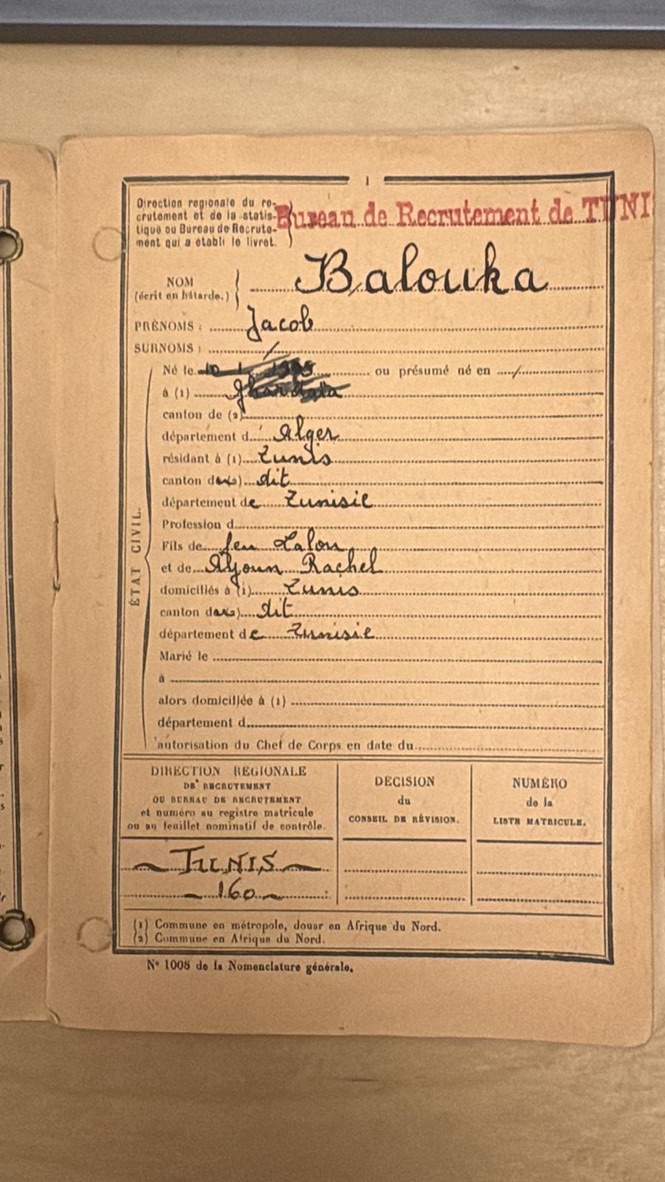 1
Direction regionale du re-
crutement et de la statis-
tique ou Bureau de Recrute-
ment qui a établi le livret.
Bureau de Recrutement de TUNI
NOM
(écrit en bâtarde.)
Balouka
PRÉNOMS : Jacob
SURNOMS : /
Né le 10 1 ou présumé né en /
à (1)
canton de (2)
département d' Alger
résidant à (1) Tunis
canton de (2) dit
département de Tunisie
Profession d
Fils de feu Lalou
et de Ayoun Rachel
domiciliés à (1) Tunis
canton de (2) dit
département de Tunisie
Marié le
à
alors domiciliée à (1)
département d
autorisation du Chef de Corps en date du
ÉTAT CIVIL.
DIRECTION RÉGIONALE
DE RECRUTEMENT
OU BUREAU DE RECRUTEMENT
et numéro au registre matricule
ou au feuillet nominatif de contrôle.
DECISION
du
CONSEIL DE RÉVISION.
NUMÉRO
de la
LISTE MATRICULE.
TUNIS
160
(1) Commune en métropole, douar en Afrique du Nord.
(2) Commune en Afrique du Nord.
N° 1008 de la Nomenclature générale.